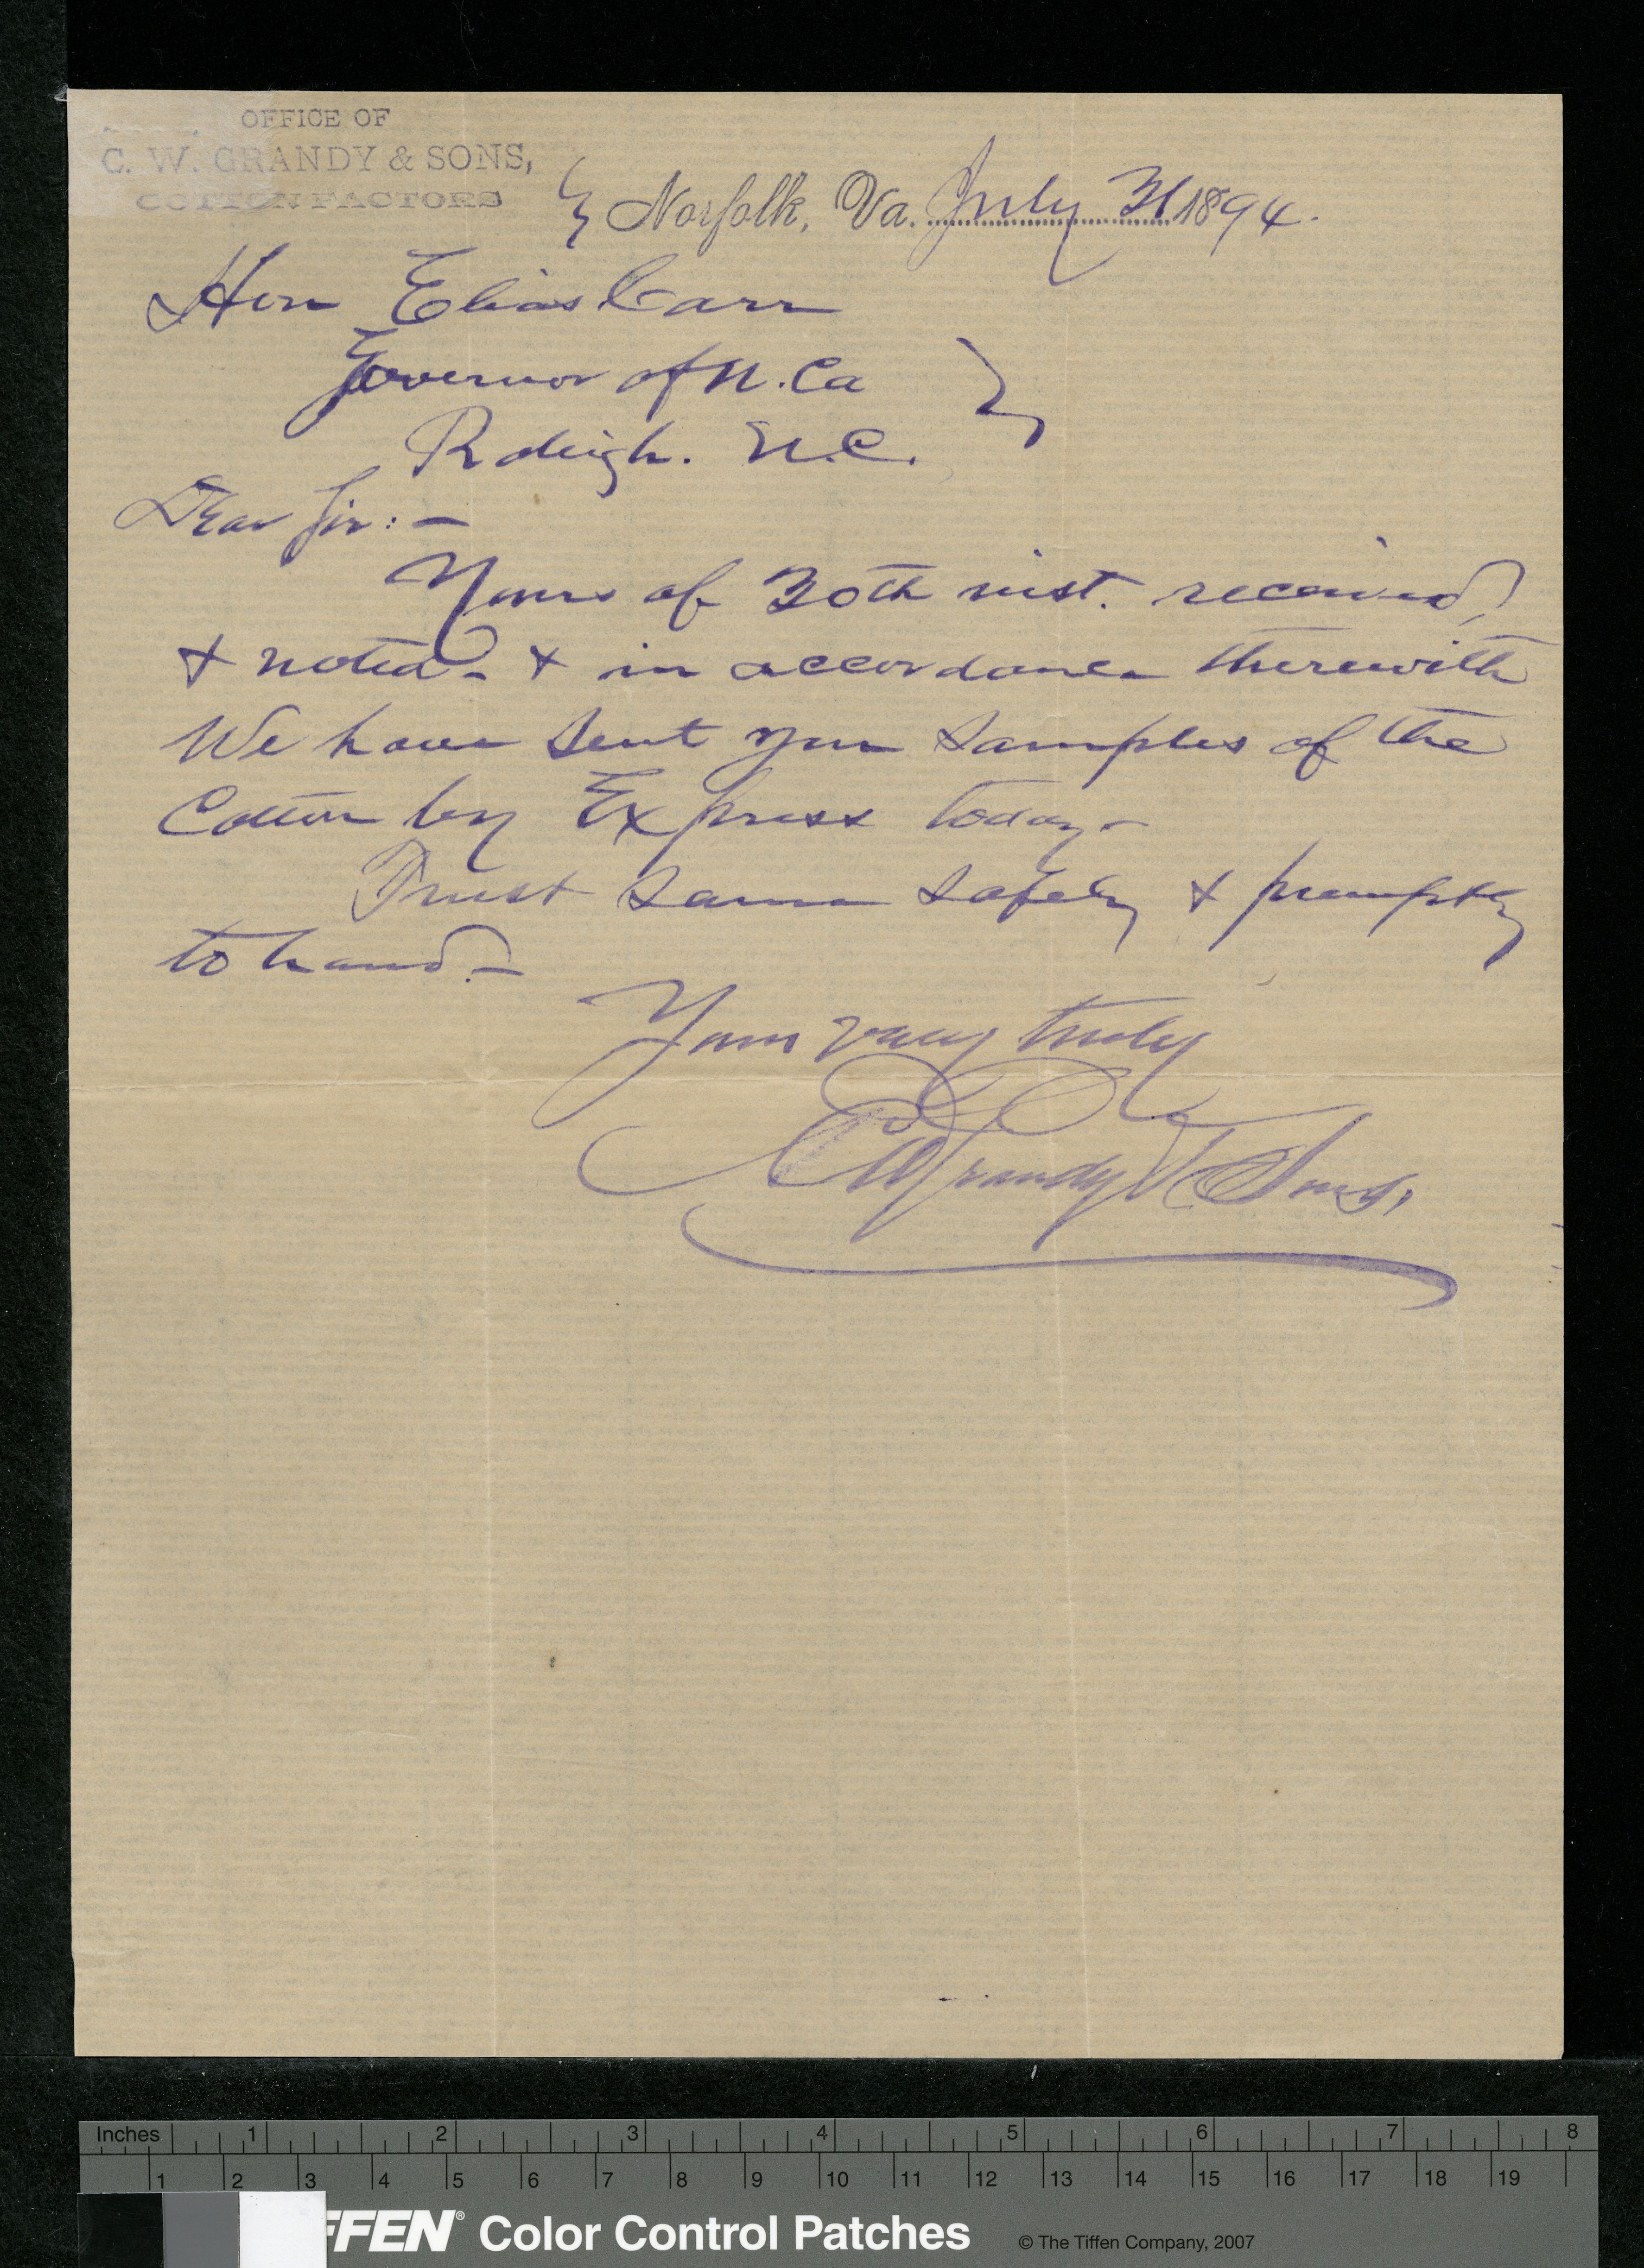 OFFICE OF
C. W. GRANDY & SONS,
COTTON FACTORS
Norfolk, Va. July 31 1894.
Hon Elias Carr
Governor of N. Ca
Raleigh. N.C.
Dear Sir: —
Yours of 30th inst. received,
& noted - & in accordance therewith
We have sent you samples of the
Cotton by Express today -
Trust same safely & promptly
to hand. -
Yours very truly
C W Grandy & Sons.
Inches 1 2 3 4 5 6 7 8
1 2 3 4 5 6 7 8 9 10 11 12 13 14 15 16 17 18 19
FFEN® Color Control Patches © The Tiffen Company, 2007